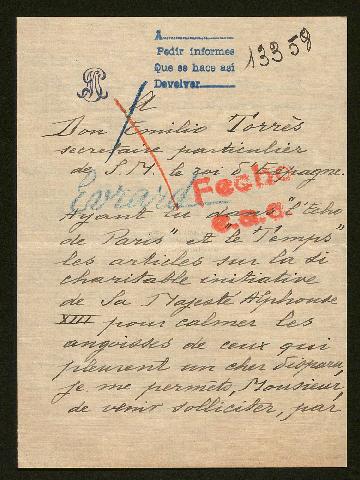 A
Pedir informes
Que se hace así
Devolver
13358
A
Don Emilio Torrès
secretaire particulier
de S. M. le roi d'Espagne.
Evrard
Fecho
e.a.a.
Ayant lu dans "l'Echo
de Paris" et "le Temps"
les articles sur la si
charitable initiative
de Sa Majesté Alphonse
XIII pour calmer les
angoisses de ceux qui
pleurent un cher disparu,
je me permets, Monsieur,
de venir solliciter, par